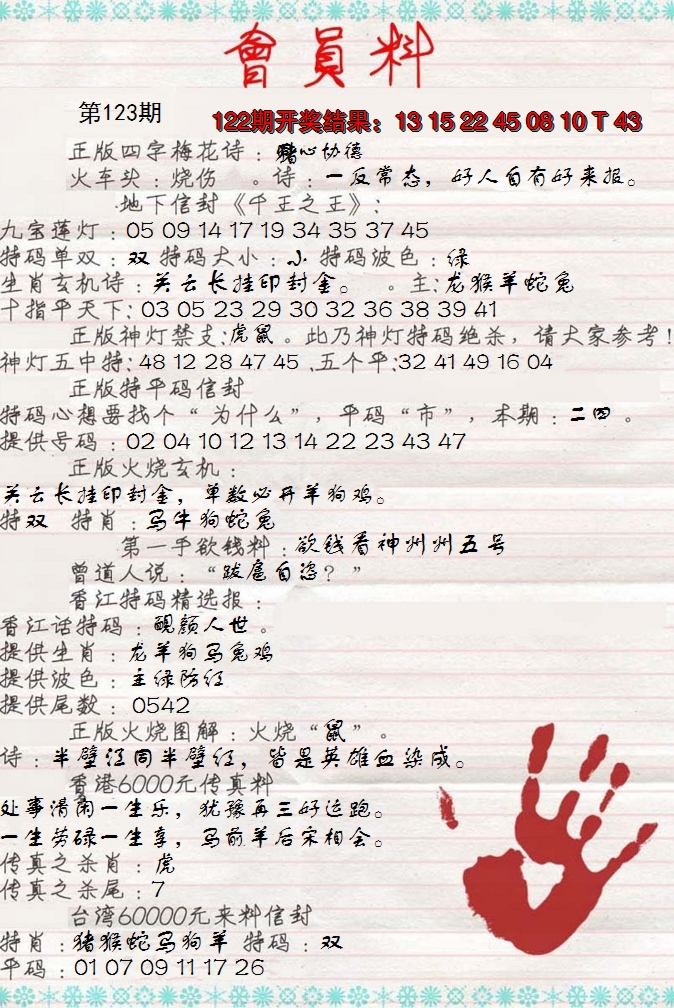 會員料
第123期
122期开奖结果：13 15 22 45 08 10 T 43
正版四字梅花诗：赌心协德
火车头：烧伤 。诗：一反常态，好人自有好来报。
地下信封《千王之王》：
九宝莲灯：05 09 14 17 19 34 35 37 45
特码单双：双 特码大小：小 特码波色：绿
生肖玄机诗：关云长挂印封金。 。主:龙猴羊蛇兔
十指平天下:03 05 23 29 30 32 36 38 39 41
正版神灯禁支:虎鼠。此乃神灯特码绝杀，请大家参考!
神灯五中特:48 12 28 47 45 .五个平:32 41 49 16 04
正版特平码信封
特码心想要找个“为什么”，平码“市”，本期：二四。
提供号码：02 04 10 12 13 14 22 23 43 47
正版火烧玄机：
关云长挂印封金，单数必开羊狗鸡。
特双 特肖：马牛狗蛇兔
第一手欲钱料：欲钱看神州州五号
曾道人说：“跋扈自恣？”
香江特码精选报：
香江话特码：靦颜人世。
提供生肖：龙羊狗马兔鸡
提供波色：主绿防红
提供尾数：0542
正版火烧图解：火烧“鼠”。
诗：半壁江同半壁红，皆是英雄血染成。
香港6000元传真料
处事清闲一生乐，犹豫再三好运跑。
一生劳碌一生享，马前羊后宋相会。
传真之杀肖：虎
传真之杀尾：7
台湾60000元来料信封
特肖：猪猴蛇马狗羊 特码：双
平码：01 07 09 11 17 26